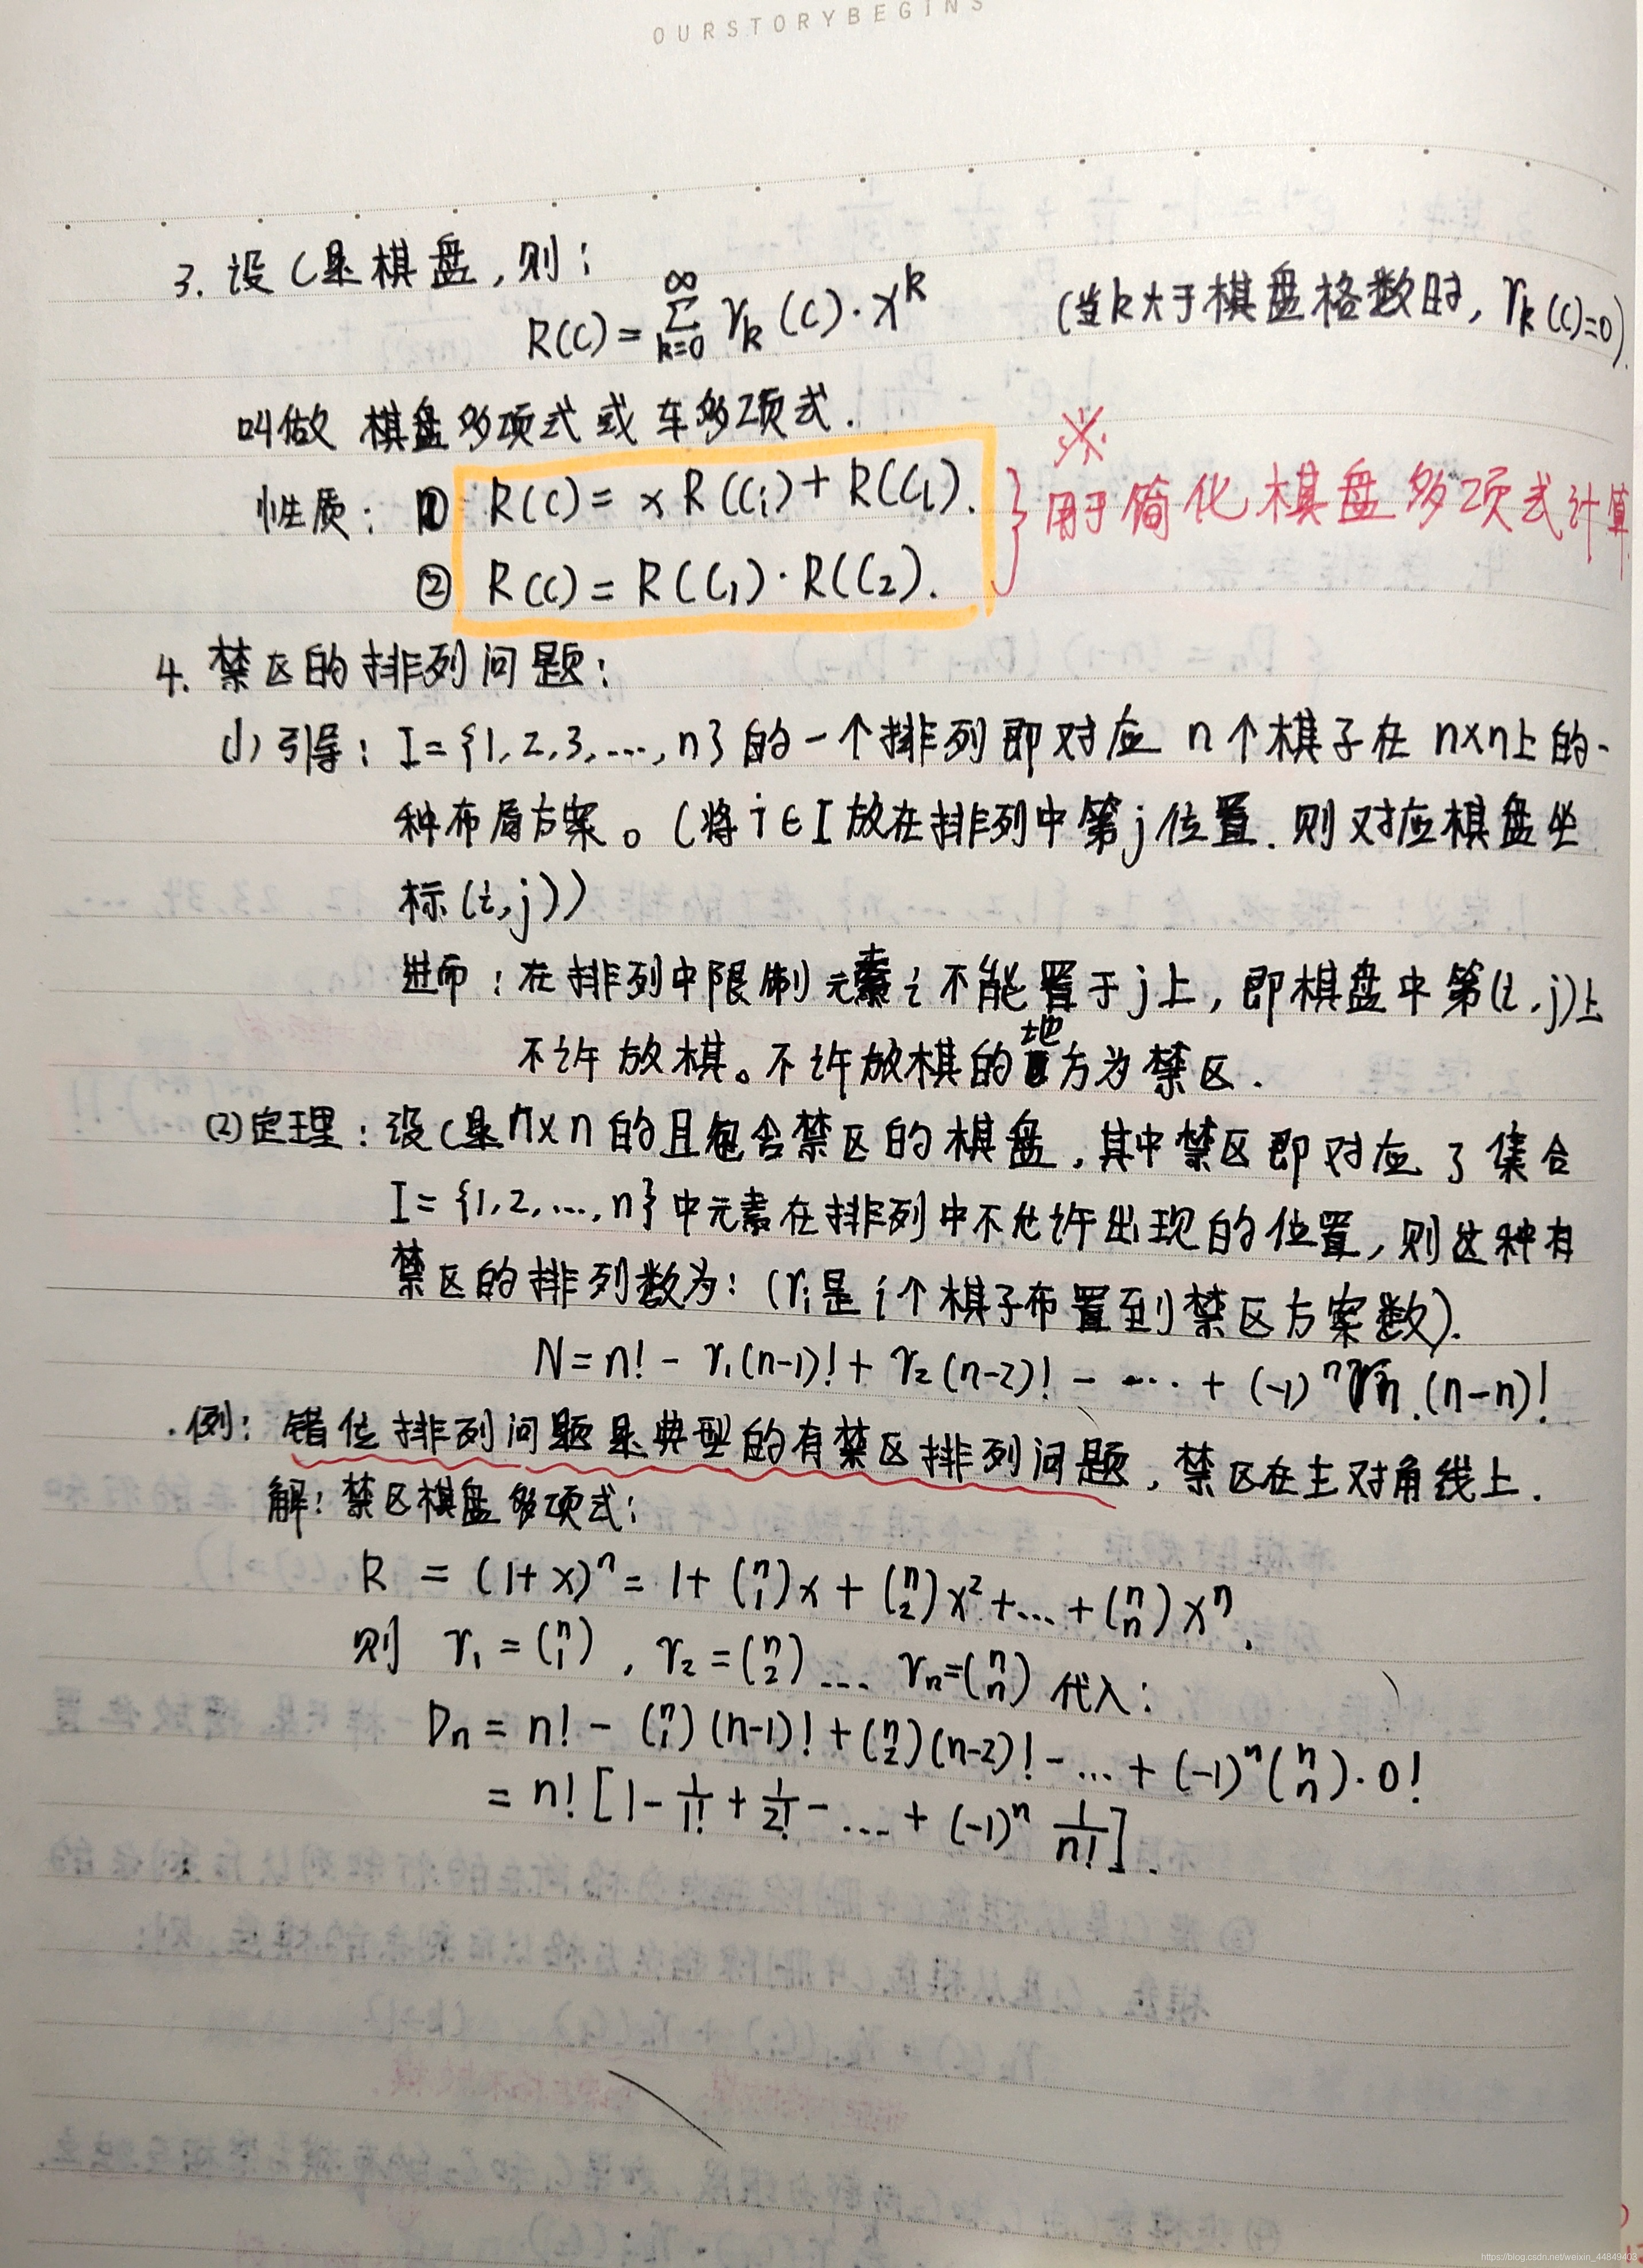 OURSTORYBEGINS
3. 设C是棋盘,则:
R(C)=∑_{k=0}^{∞} r_k(C)·x^k (当k大于棋盘格数时, r_k(C)=0).
叫做 棋盘多项式或 车多项式.
※
性质: ① R(C)= x R(C_i)+R(C_l). } 用于简化棋盘多项式计算
② R(C)=R(C_1)·R(C_2).
4. 禁区的排列问题:
(1) 引导: I={1,2,3,...,n}的一个排列即对应 n个棋子在 n×n上的一
种布局方案。(将i∈I放在排列中第j位置.则对应棋盘坐
标(i,j))
进而:在排列中限制元素i不能置于j上,即棋盘中第(i,j)上
不许放棋。不许放棋的地方为禁区.
(2)定理:设C是n×n的且包含禁区的棋盘,其中禁区即对应了集合
I={1,2,...,n}中元素在排列中不允许出现的位置,则这种有
禁区的排列数为:(r_i是i个棋子布置到禁区方案数).
N=n!-r_1(n-1)!+r_2(n-2)!-...+(-1)^n r_n.(n-n)!
.例: 错位排列问题是典型的有禁区排列问题,禁区在主对角线上.
解:禁区棋盘多项式:
R =(1+x)^n=1+(n 1)x+(n 2)x²+...+(n n)x^n.
则 r_1=(n 1), r_2=(n 2)... r_n=(n n) 代入:
D_n=n!-(n 1)(n-1)!+(n 2)(n-2)!-...+(-1)^n(n n)·0!
=n![1-1/1!+1/2!-...+(-1)^n 1/n!].
https://blog.csdn.net/weixin_44849403